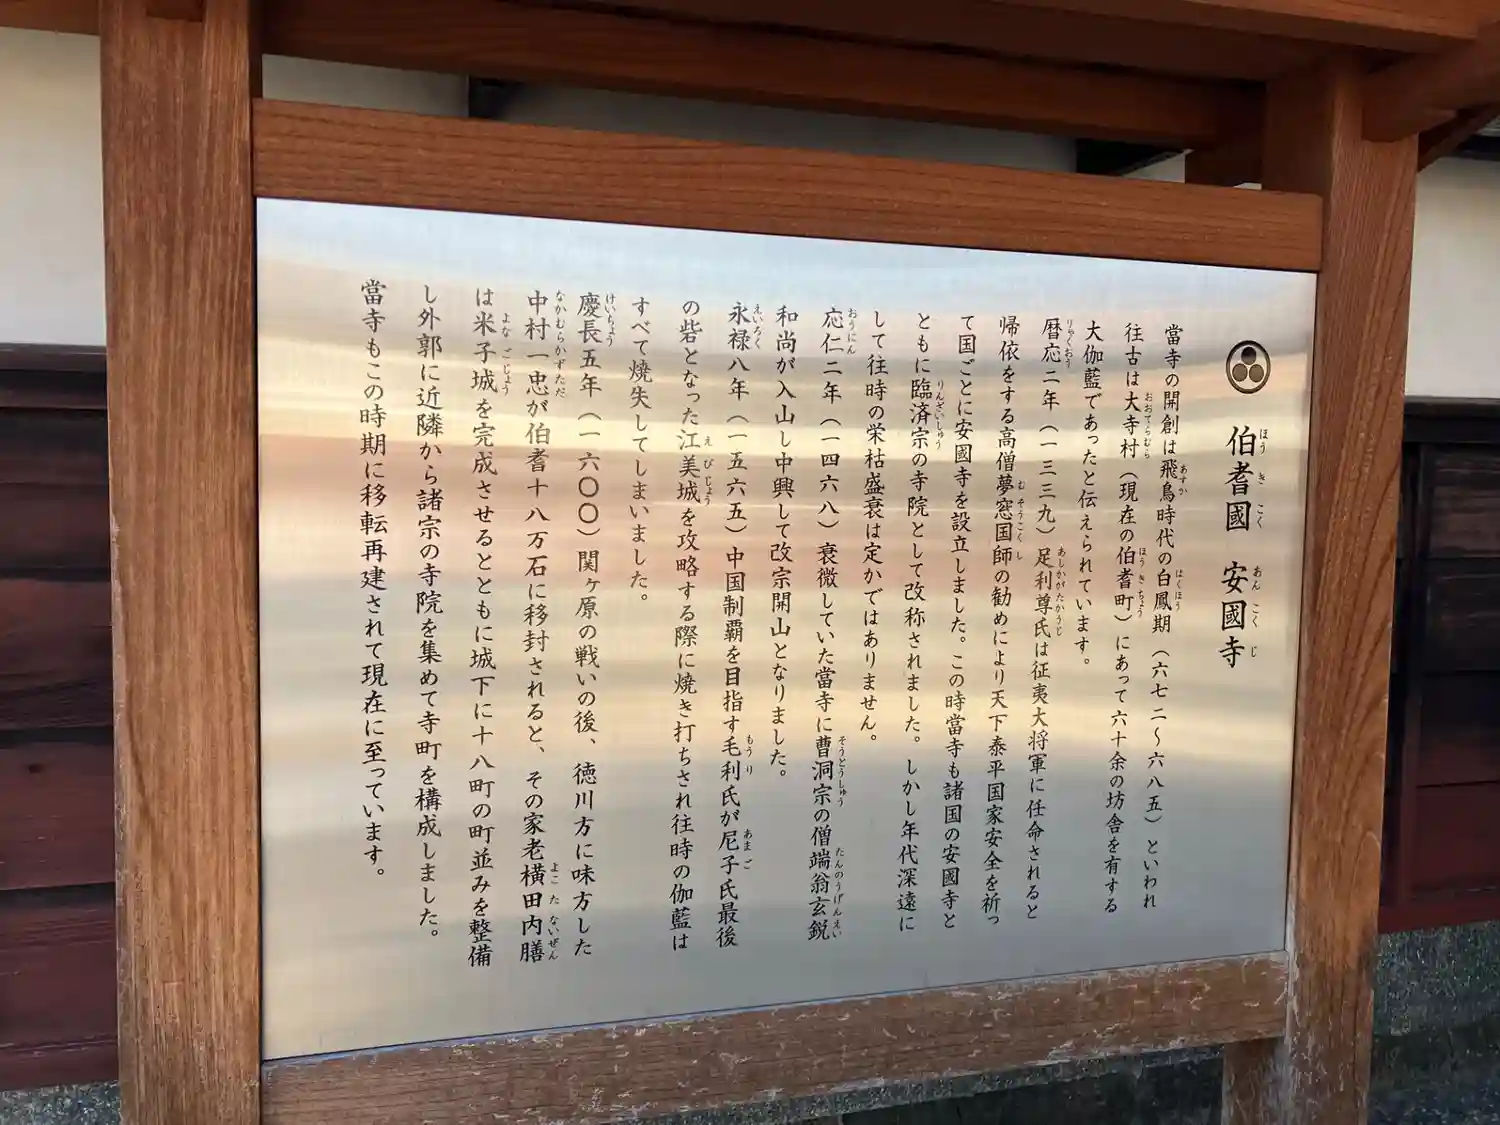 伯耆國 安國寺
當寺の開創は飛鳥時代の白鳳期（六七二～六八五）といわれ
往古は大寺村（現在の伯耆町）にあって六十余の坊舎を有する
大伽藍であったと伝えられています。
暦応二年（一三三九）足利尊氏は征夷大将軍に任命されると
帰依をする高僧夢窓国師の勧めにより天下泰平国家安全を祈っ
て国ごとに安國寺を設立しました。この時當寺も諸国の安國寺と
ともに臨済宗の寺院として改称されました。しかし年代深遠に
して往時の栄枯盛衰は定かではありません。
応仁二年（一四六八）衰微していた當寺に曹洞宗の僧端翁玄鋭
和尚が入山し中興して改宗開山となりました。
永禄八年（一五六五）中国制覇を目指す毛利氏が尼子氏最後
の砦となった江美城を攻略する際に焼き打ちされ往時の伽藍は
すべて焼失してしまいました。
慶長五年（一六〇〇）関ヶ原の戦いの後、徳川方に味方した
中村一忠が伯耆十八万石に移封されると、その家老横田内膳
は米子城を完成させるとともに城下に十八町の町並みを整備
し外郭に近隣から諸宗の寺院を集めて寺町を構成しました。
當寺もこの時期に移転再建されて現在に至っています。